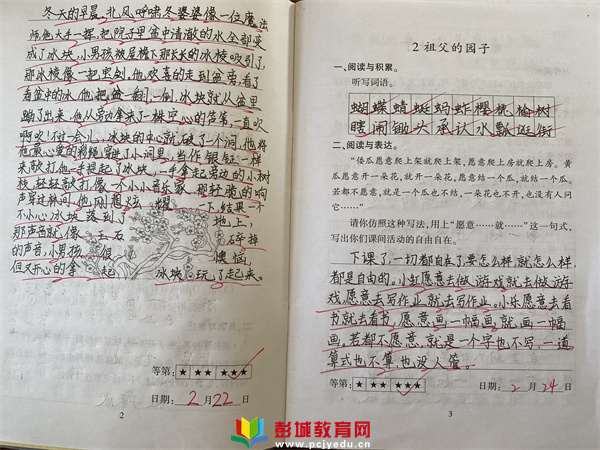 冬天的早晨,北风呼啸冬婆婆像一位魔法
师,他大手一挥,把院子里盆中清澈的水全部变
成了冰块,小男孩被屋檐下那长长的冰棱吸引了,
那冰棱像一把宝剑,他欢喜的走到盆旁,看了
看盆中的冰,他把盆一翻,一倒,冰块就从盆里
蹦了出来。他从旁边拿了一株空心的芦苇一直吹
啊吹!不过一会儿,冰块的中心就破了一个洞,他将
他最心爱的彩绳穿进了小洞里,当作银钲一样
来敲打他一手提起了冰块,一手拿起旁边的小树
枝,轻轻敲打像一个小小音乐家,那轻脆的响
声穿过林间,他刚想炫耀下,结果一个
不小心冰块落到了地上,
那声音就像玉石碎掉
的声音,小男孩很懊恼,
但又开心的拿起冰块玩了起来。
等第: ★ ★★ ★★★
日期: 2 月 22 日
2
2 祖父的园子
一、阅读与积累。
听写词语。
蝴蝶蜻蜓蚂蚱樱桃榆树
瞎闹锄头承认水瓢逛街
二、阅读与表达。
“倭瓜愿意爬上架就爬上架,愿意爬上房就爬上房。黄
瓜愿意开一朵花,就开一朵花,愿意结一个瓜,就结一个瓜。
若都不愿意,就是一个瓜也不结,一朵花也不开,也没有人问
它……”
请你仿照这种写法,用上“愿意……就……”这一句式,
写出你们课间活动的自由自在。
下课了,一切都自由了要怎么样,就怎么样,
都是自由的。小虹愿意去做游戏就去做游
戏,愿意去写作业就去写作业。小乐愿意去看
书就去看书,愿意画一幅画,就画一幅
画。若都不愿意,就是一个字也不写,一道
算式也不算,也没人管。
等第: ★ ★★ ★★★
日期: 2 月 24 日
3
彭城教育网
www.pcjyedu.cn